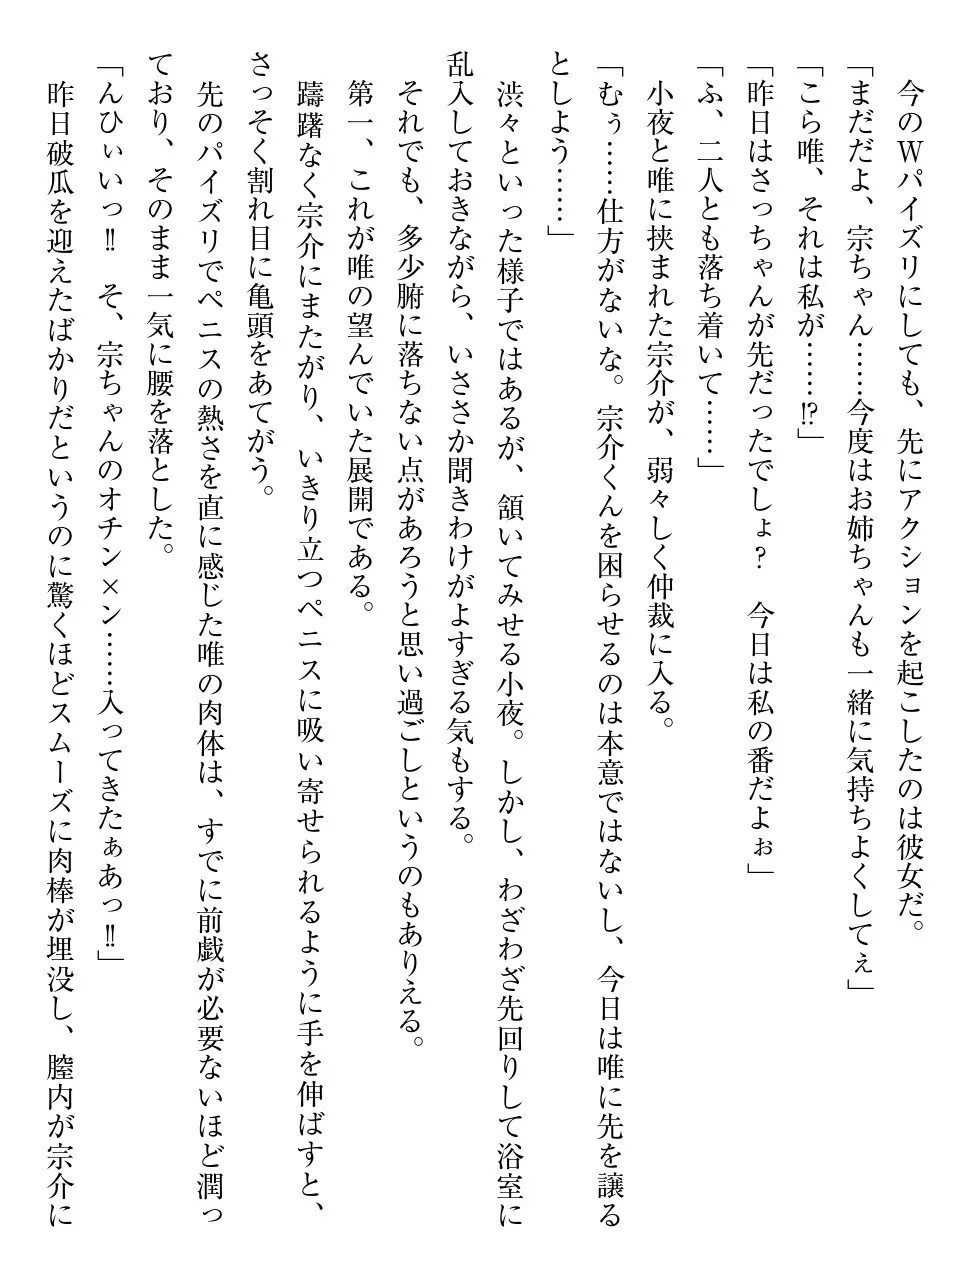 今のＷパイズリにしても、先にアクションを起こしたのは彼女だ。
「まだだよ、宗ちゃん……今度はお姉ちゃんも一緒に気持ちよくしてぇ」
「こら唯、それは私が……⁉」
「昨日はさっちゃんが先だったでしょ？　今日は私の番だよぉ」
「ふ、二人とも落ち着いて……」
小夜と唯に挟まれた宗介が、弱々しく仲裁に入る。
「むぅ……仕方がないな。宗介くんを困らせるのは本意ではないし、今日は唯に先を譲る
としよう……」
渋々といった様子ではあるが、頷いてみせる小夜。しかし、わざわざ先回りして浴室に
乱入しておきながら、いささか聞きわけがよすぎる気もする。
それでも、多少腑に落ちない点があろうと思い過ごしというのもありえる。
第一、これが唯の望んでいた展開である。
躊躇なく宗介にまたがり、いきり立つペニスに吸い寄せられるように手を伸ばすと、
さっそく割れ目に亀頭をあてがう。
先のパイズリでペニスの熱さを直に感じた唯の肉体は、すでに前戯が必要ないほど潤っ
ており、そのまま一気に腰を落とした。
「んひぃいっ‼　そ、宗ちゃんのオチン×ン……入ってきたぁあっ‼」
昨日破瓜を迎えたばかりだというのに驚くほどスムーズに肉棒が埋没し、膣内が宗介に